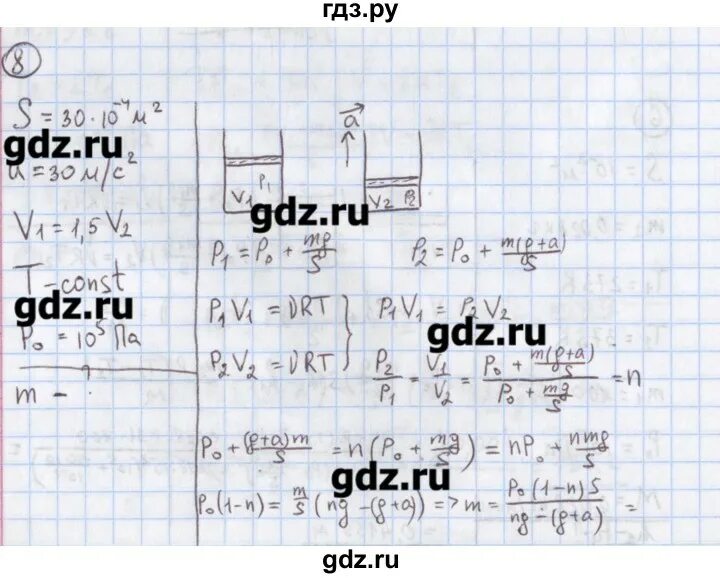 гдз.ру
8
S = 30·10⁻⁴ м²
gdz.ru
a = 30 м/с²
V₁ = 1,5 V₂
T - const
gdz.ru
P₀ = 10⁵ Па
m - ?
a
V₁ P₁
V₂ P₂
gdz.ru
P₁ = P₀ + mg/S
P₂ = P₀ + m(g+a)/S
P₁V₁ = νRT } P₁V₁ = P₂V₂
gdz.ru
P₂V₂ = νRT
P₂/P₁ = V₁/V₂ = (P₀ + m(g+a)/S)/(P₀ + mg/S) = n
P₀ + (g+a)m/S = n(P₀ + mg/S) = nP₀ + nmg/S
gdz.ru
P₀(1-n) = m/S (ng - (g+a)) => m = P₀(1-n)S/(ng - (g+a)) =
gdz.ru